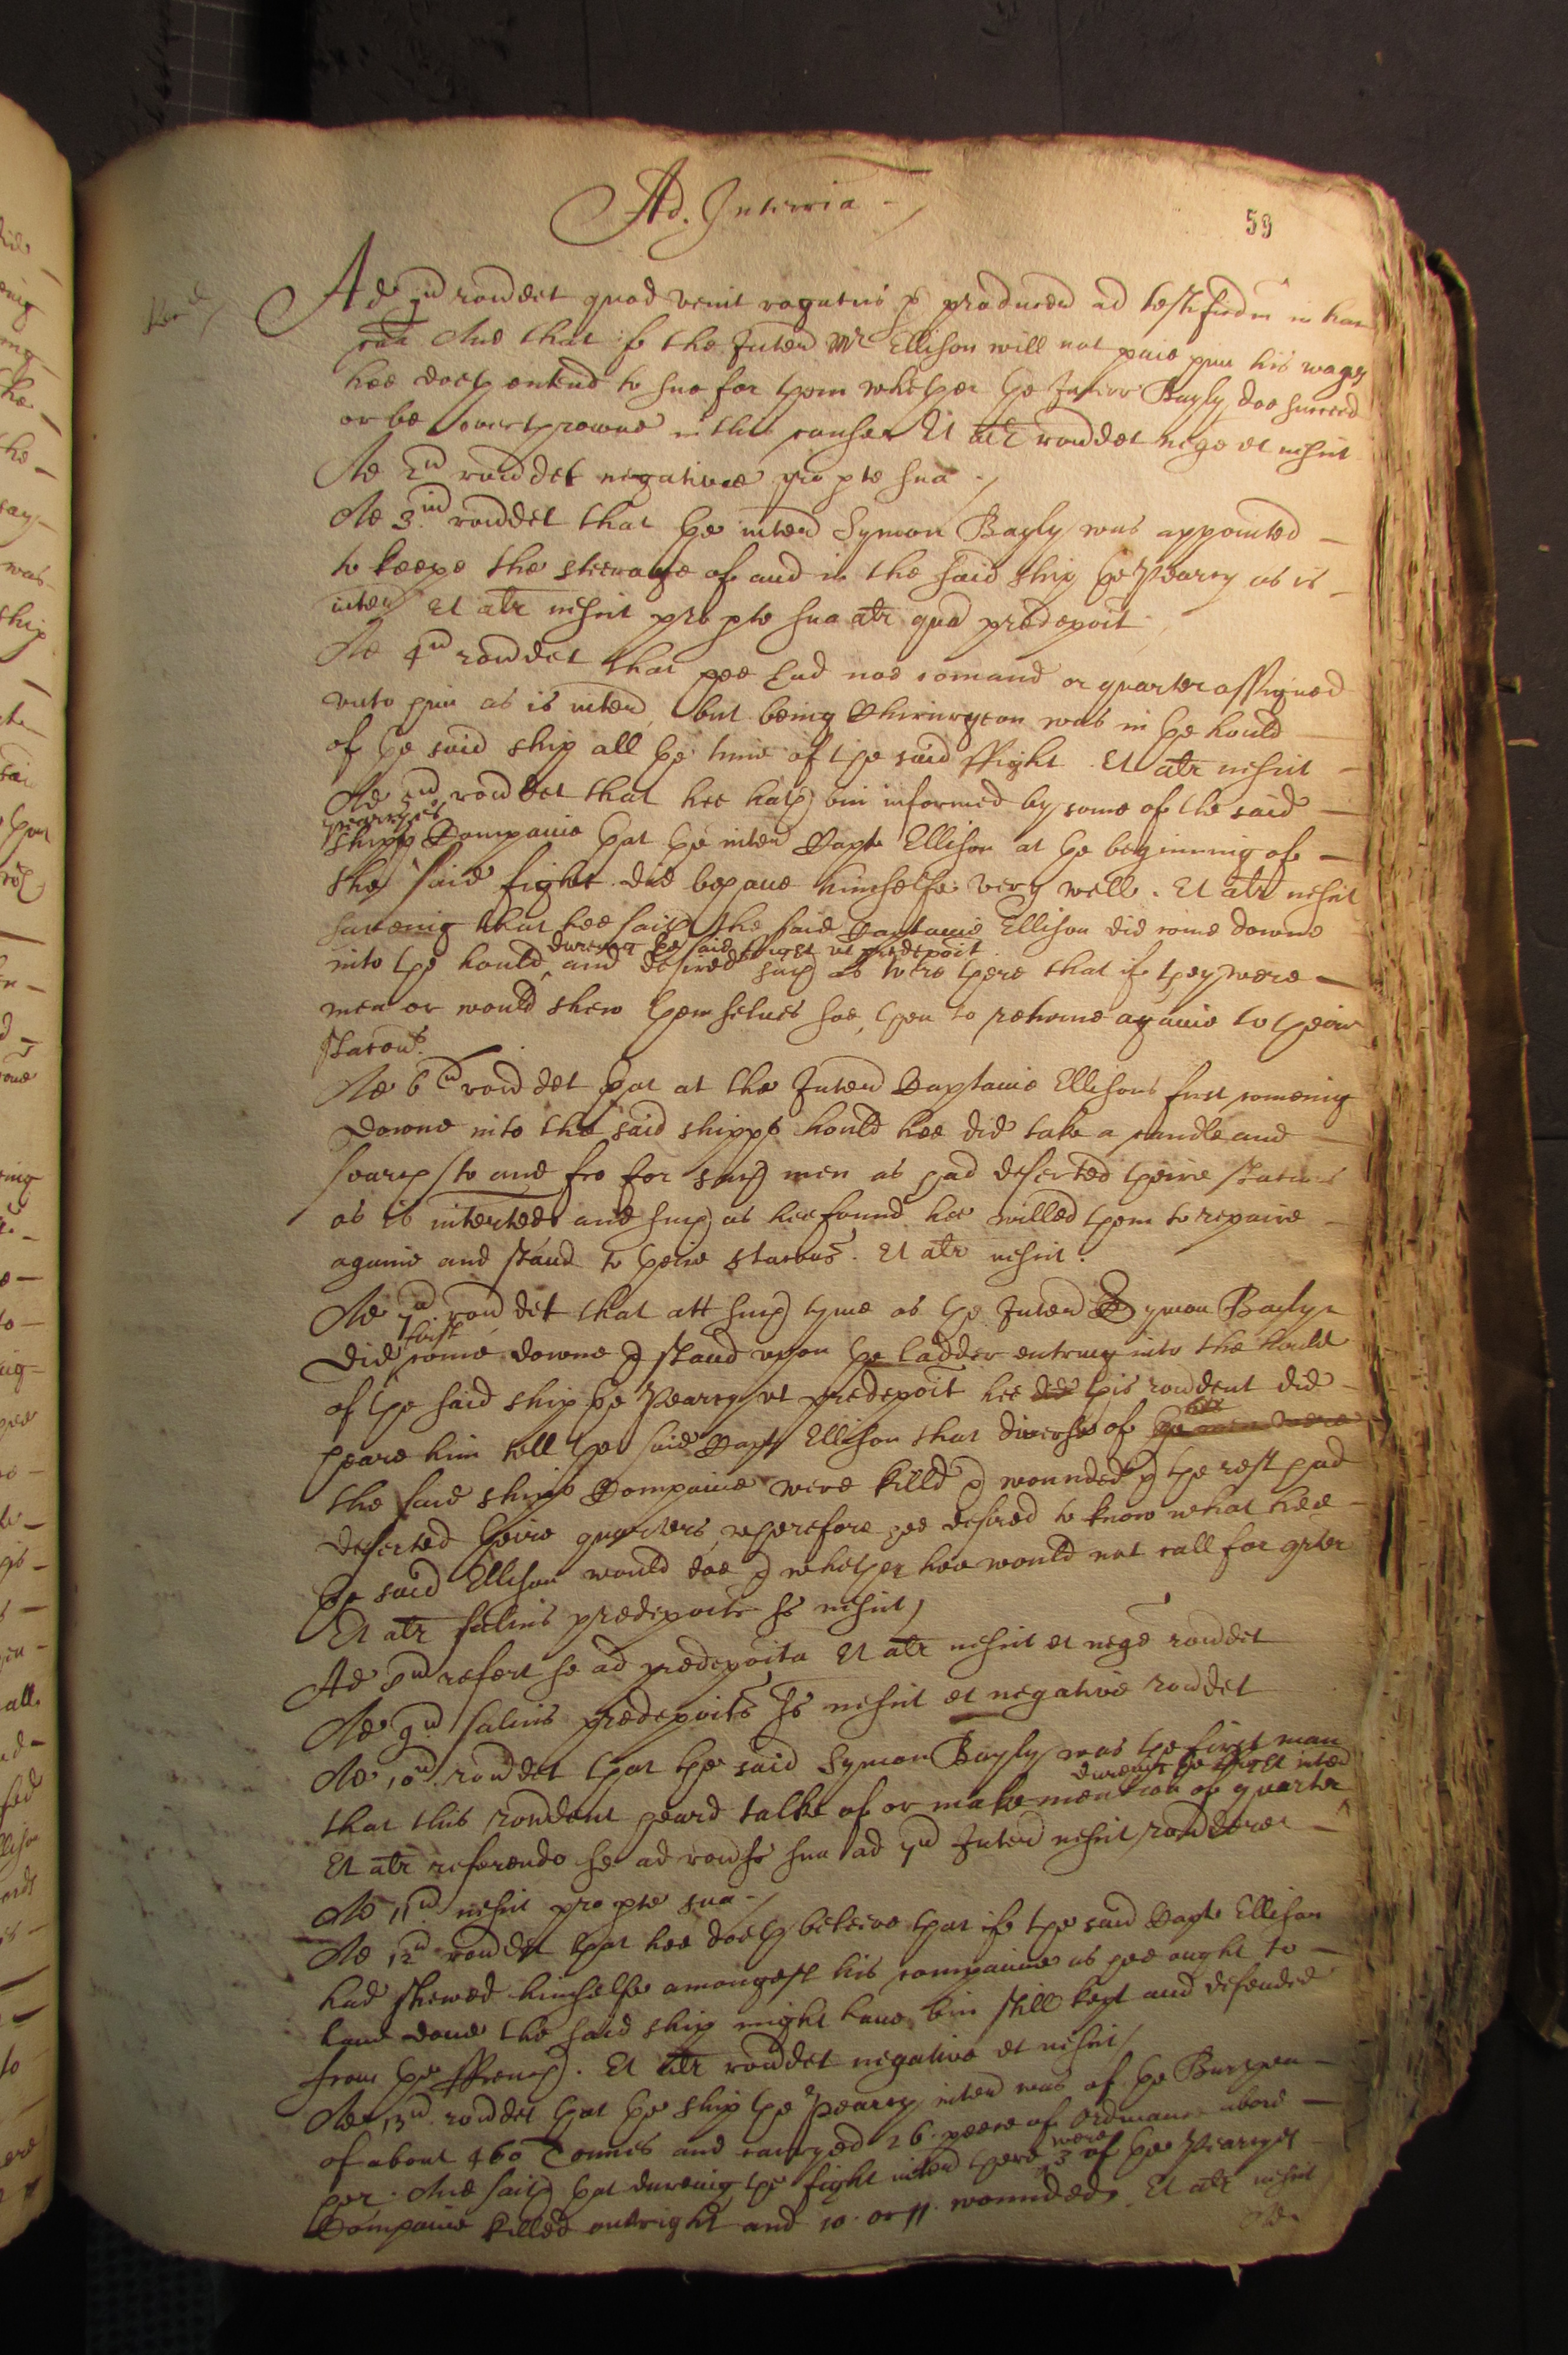 Ad. Interria
59
Ad jud rondet quod venit rogatus p producen ad testificdu in hac
caa And that if the Inter Mr Ellison will not paie him his wages
hee doeth entend to sue for them whether the Interr Bayly doe succeed
or be overthrowne in this cause Et atr rondet nege et nescit
Ad 2ud rondet negative pro pte sua
Ad 3ud rondet that the inter Symon Bayly was appointed
to keepe the steerage of and in the said ship the Pearey as is
inter Et atr nescit pro pte sua atr qua predepoit
Ad 4ud rondet that hee had noe comand or quarter assigned
unto him as is inter, but being Chirurgeon was in the hould
of the said ship all the time of the said ffight Et atr nescit
Ad 5ud rondet that hee hath bin informed by some of the said
Pearyes
shipps Companie that the inter Capt Ellison at the beginning of
the said fight did behave himselfe very well. Et atr nescit
saveing that hee saith the said Captaine Ellison did come downe
during the said fight ut predepoit
into the hould and desired such as were there that if they were
men or would shew themselves soe, then to retorne againe to their
stations.
Ad 6ud rondet that at the Inter Captaine Ellisons first comeing
downe into the said shipps hould hee did take a candle and
search to and fro for such men as had deserted theire stations
as is interted and such as hee found hee willed them to repaire
againe and stand to theire stations. Et atr nescit.
Ad 7ud rondet that att such tyme as the Inter Symon Bayly
first
did come downe & stand upon the ladder entring into the hould
of the said ship the Pearey ut predepoit hee did this rondent did
heare him tell the said Capt Ellison that diverse of the men were
the said ships Companie were killd & wounded & the rest had
deserted theire quarters, wherefore hee desired to know what hee
the said Ellison would doe & whether hee would not call for qrter
Et atr salvis predepoits s nescit
Ad 8ud refert se ad predepoita Et atr nescit et nege rondet
Ad 9ud salvis predepoits s nescit et negative rondet
Ad 10ud rondet that the said Symon Bayly was the first man
dureing the ffight inted
that this rondent heard talke of or make mention of quarter
Et atr referendo se ad ronsis sua ad 7ud Inter nescit rondere
Ad 11ud nescit pro pte sua
Ad 12ud rondet that hee doeth beleive that if the said Capt Ellison
had shewed himselfe amongest his companie as hee ought to
have done the said ship might have bin still kept and defended
from the ffrench. Et atr rondet negative et nescit
Ad 13ud rondet that the ship the Pearey inter was of the Burthen
of about 460 Tonnes and carryed 26 peece of Ordinance abord
were
her. And saith that dureing the fight inter there 3 of the Pearyes
Companie killed outright and 10 or 11 wounded. Et atr nescit
Ad